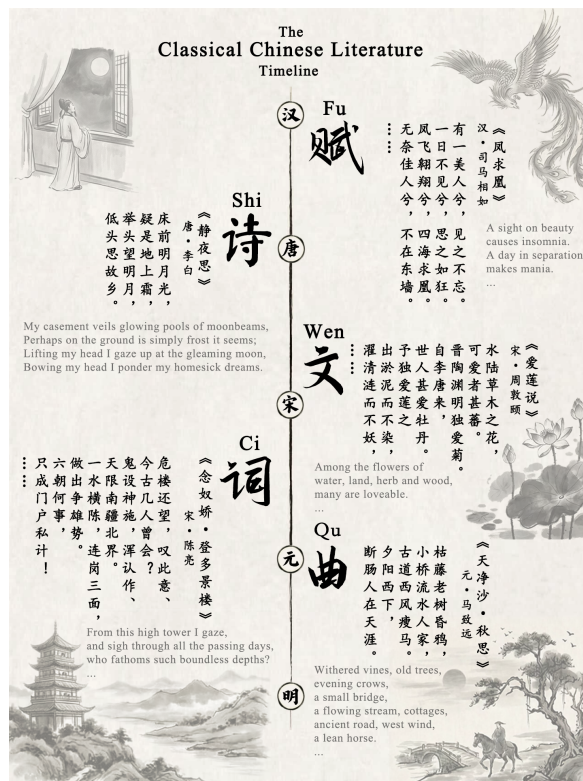 The
Classical Chinese Literature
Timeline
汉
Fu
赋
《凤求凰》
汉•司马相如
有一美人兮，见之不忘。
一日不见兮，思之如狂。
凤飞翱翔兮，四海求凰。
无奈佳人兮，不在东墙。
……
A sight on beauty
causes insomnia.
A day in separation
makes mania.
...
唐
Shi
诗
《静夜思》
唐•李白
床前明月光，
疑是地上霜，
举头望明月，
低头思故乡。
My casement veils glowing pools of moonbeams,
Perhaps on the ground is simply frost it seems;
Lifting my head I gaze up at the gleaming moon,
Bowing my head I ponder my homesick dreams.
宋
Wen
文
《爱莲说》
宋•周敦颐
水陆草木之花，
可爱者甚蕃。
晋陶渊明独爱菊。
自李唐来，
世人甚爱牡丹。
予独爱莲之
出淤泥而不染，
濯清涟而不妖，
……
Among the flowers of
water, land, herb and wood,
many are loveable.
...
Ci
词
《念奴娇•登多景楼》
宋•陈亮
危楼还望，叹此意、
今古几人曾会？
鬼设神施，浑认作、
天限南疆北界。
一水横陈，连岗三面，
做出争雄势。
六朝何事，
只成门户私计！
……
From this high tower I gaze,
and sigh through all the passing days,
who fathoms such boundless depths?
...
元
Qu
曲
《天净沙•秋思》
元•马致远
枯藤老树昏鸦，
小桥流水人家，
古道西风瘦马。
夕阳西下，
断肠人在天涯。
Withered vines, old trees,
evening crows,
a small bridge,
a flowing stream, cottages,
ancient road, west wind,
a lean horse.
...
明